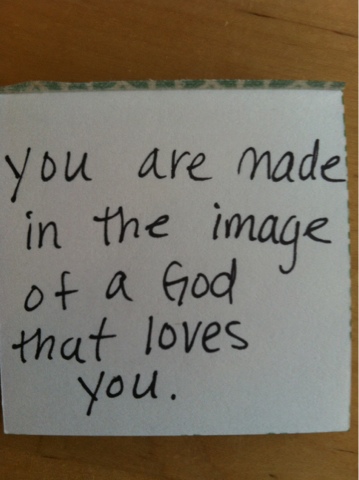 you are made
in the image
of a God
that loves
you.